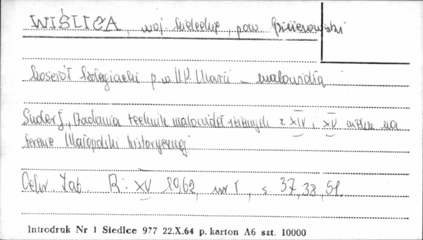 WIŚLICA, woj. kieleckie, pow. 
kościół kolegiacki p.w. NP. Marii – malowidła
Suder J., Badania technik malowideł ściennych z XIV i XV wieku na
terenie Małopolski historycznej
Ochr. Zab. R: XV 1962, nr 1, s. 37, 38, 51.
Introdruk Nr 1 Siedlce 977 22.X.64 p. karton A6 szt. 10000